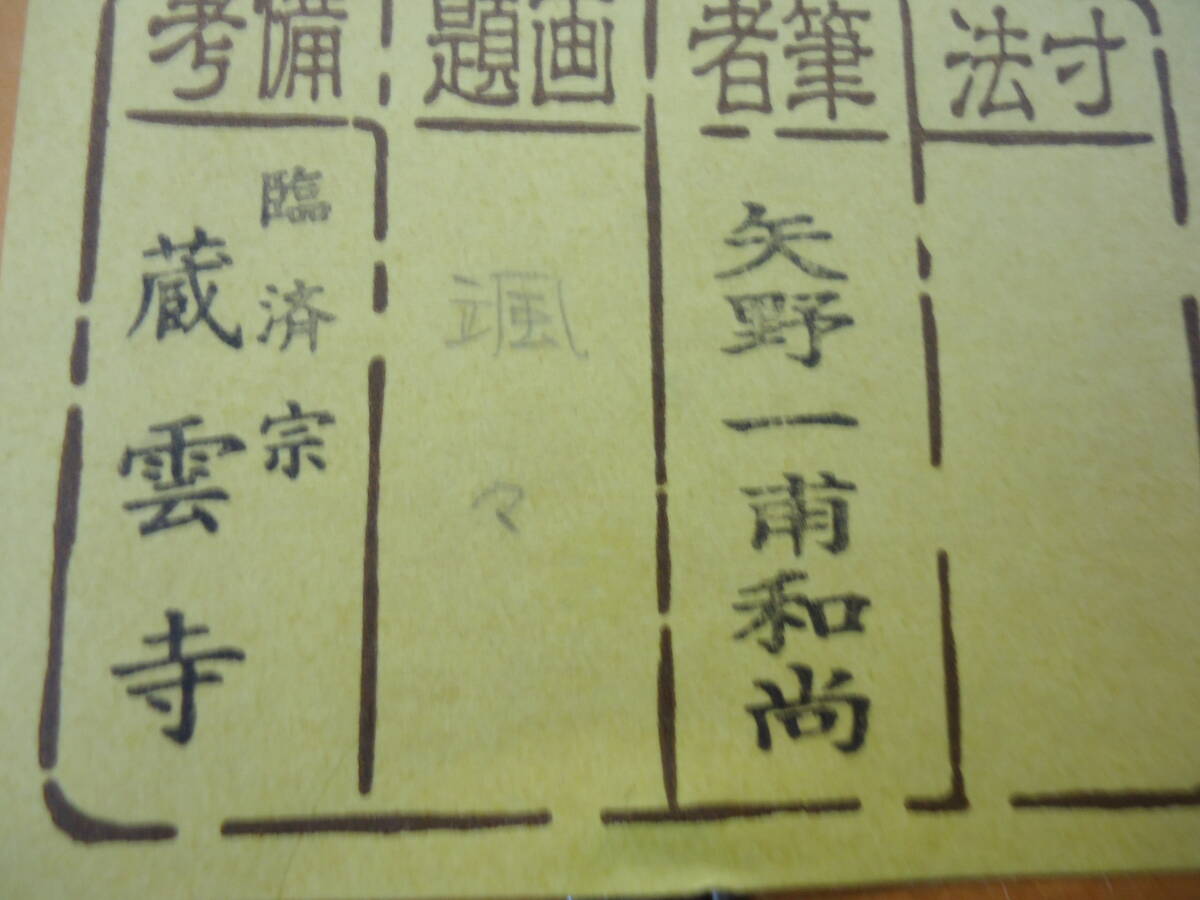 寸法
筆者
矢野一甫和尚
画題
颯々
備考
臨済宗
蔵雲寺